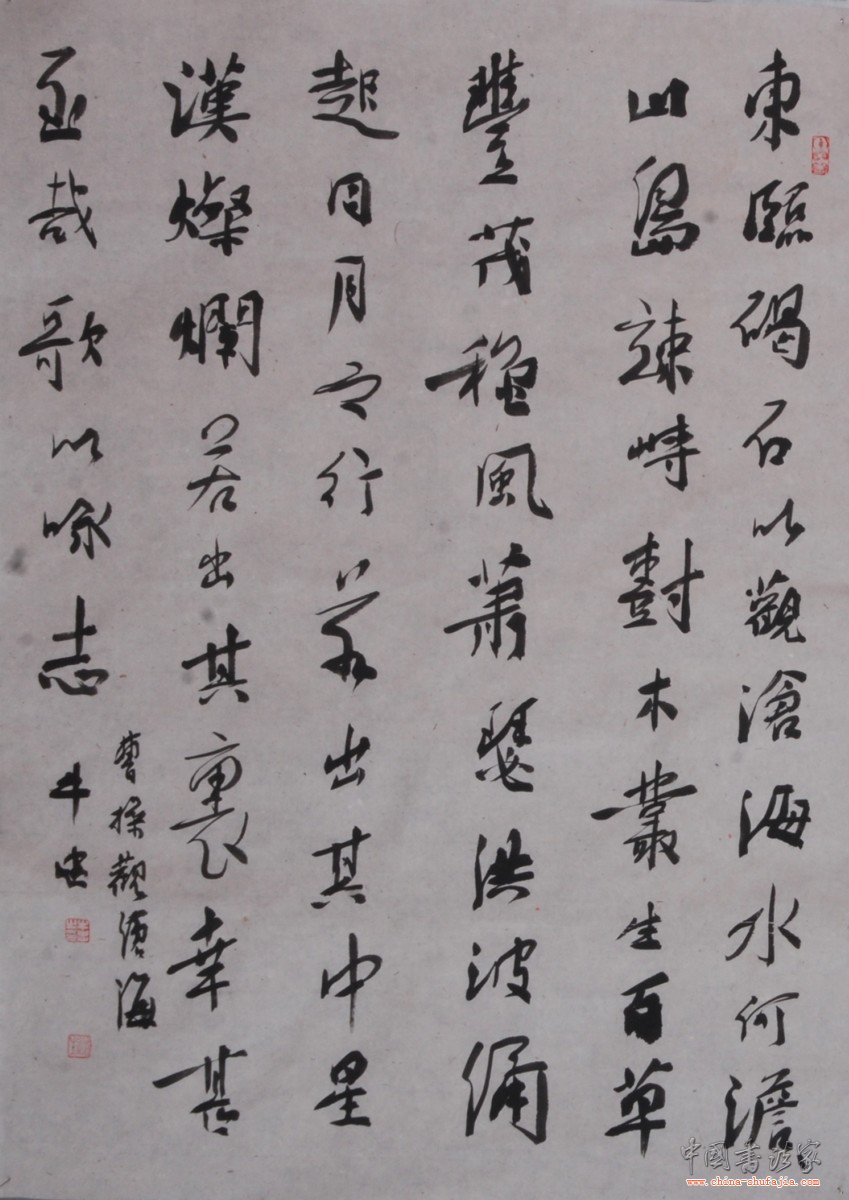 東臨碣石以觀滄海水何澹
山島竦峙樹木叢生百草
豐茂穐風蕭瑟洪波涌
起日月之行若出其中星
漢燦爛若出其裏幸甚
至哉歌以咏志
曹操觀滄海
牛
中国书法家
www.china-shufajia.com